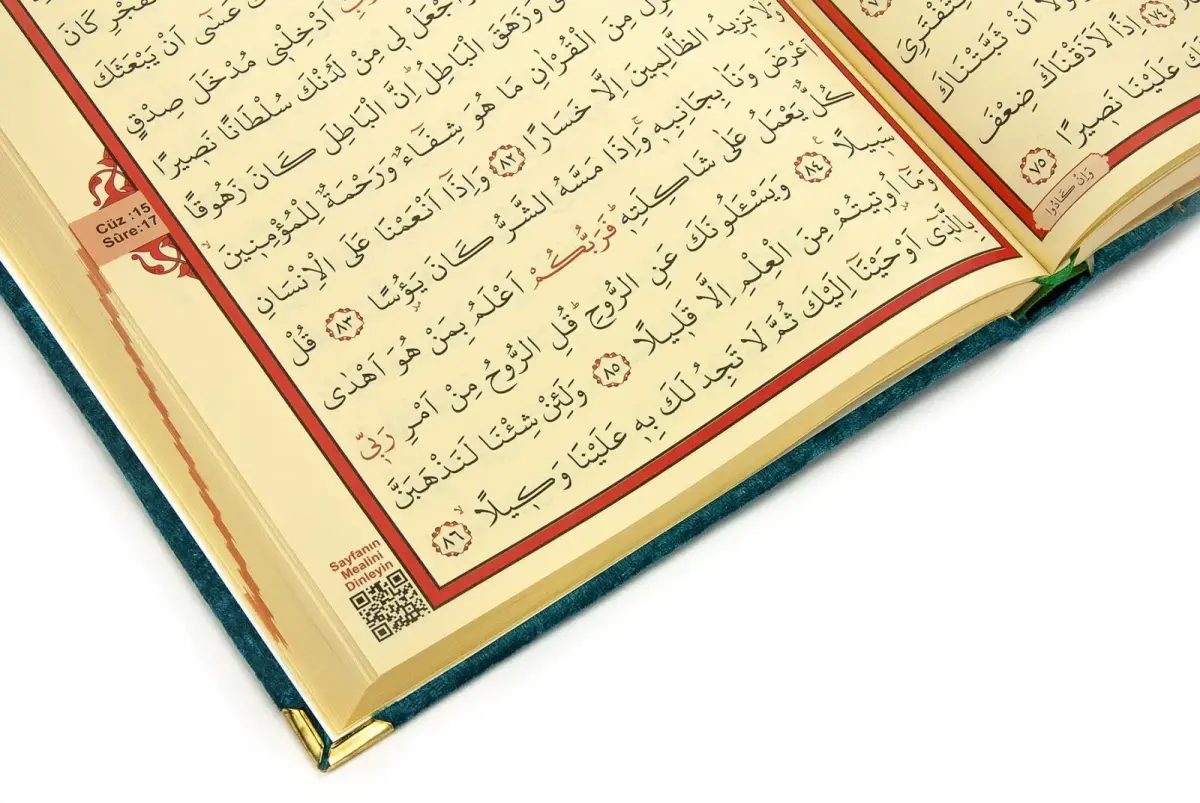 لِتَفْتَرِىَ
اَنْ ثَبَّتْنَاكَ
٧٤ اِذًا لَاَذَقْنَاكَ ضِعْفَ
عَلَيْنَا نَصٖيرًا ٧٥
وَاِنْ كَادُوا
كَانَ
عَسٰٓى اَنْ يَبْعَثَكَ
اَدْخِلْنٖى مُدْخَلَ صِدْقٍ
وَاجْعَلْ لٖى مِنْ لَدُنْكَ سُلْطَانًا نَصٖيرًا
وَزَهَقَ الْبَاطِلُ اِنَّ الْبَاطِلَ كَانَ زَهُوقًا
مِنَ الْقُرْاٰنِ مَا هُوَ شِفَٓاءٌ وَرَحْمَةٌ لِلْمُؤْمِنٖينَ
وَلَا يَزٖيدُ الظَّالِمٖينَ اِلَّا خَسَارًا ٨٢ وَاِذَٓا اَنْعَمْنَا عَلَى الْاِنْسَانِ
اَعْرَضَ وَنَاٰ بِجَانِبِهٖ وَاِذَا مَسَّهُ الشَّرُّ كَانَ يَؤُ۫سًا ٨٣ قُلْ
كُلٌّ يَعْمَلُ عَلٰى شَاكِلَتِهٖ فَرَبُّكُمْ اَعْلَمُ بِمَنْ هُوَ اَهْدٰى
سَبٖيلًا ٨٤ وَيَسْـَٔلُونَكَ عَنِ الرُّوحِ قُلِ الرُّوحُ مِنْ اَمْرِ رَبّٖى
وَمَٓا اُو۫تٖيتُمْ مِنَ الْعِلْمِ اِلَّا قَلٖيلًا ٨٥ وَلَئِنْ شِئْنَا لَنَذْهَبَنَّ
بِالَّذٖٓى اَوْحَيْنَٓا اِلَيْكَ ثُمَّ لَا تَجِدُ لَكَ بِهٖ عَلَيْنَا وَكٖيلًا ٨٦
Cüz :15
Sûre:17
Sayfanın
Mealini
Dinleyin